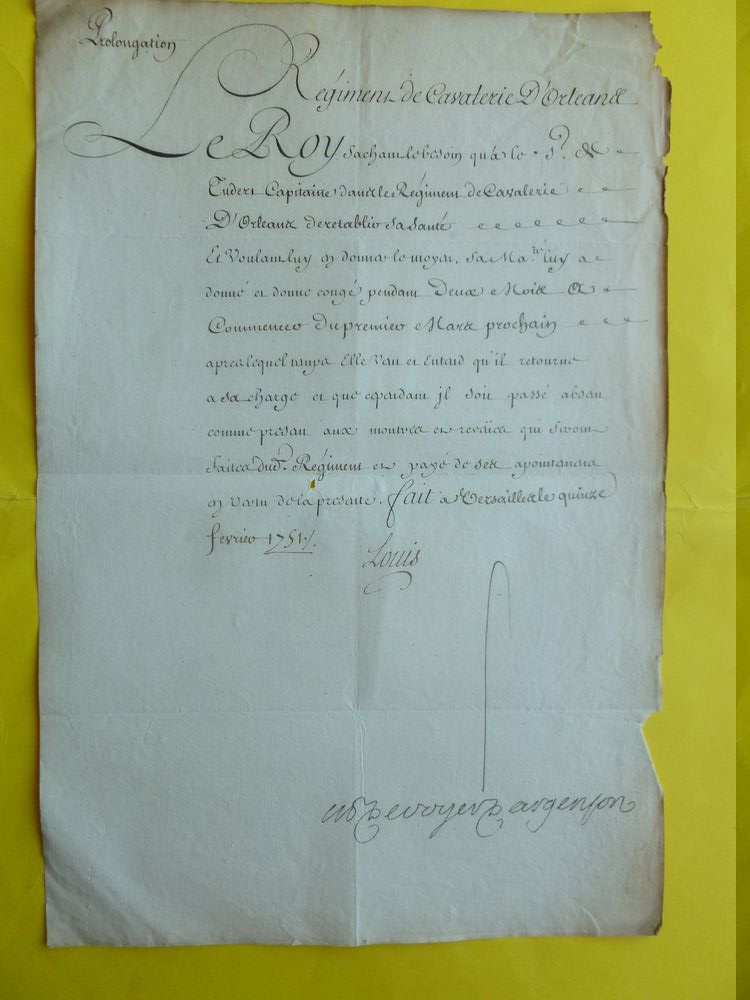 Prolongation
Régiment de Cavalerie D'Orleans
Le Roy sachant le besoin qu'a le Sr. de
Tudert Capitaine dans le Régiment de Cavalerie
D'Orleans de retablir sa santé
Et Voulant luy en donner le moyen, sa Ma.té luy a
donné et donne congé pendant Deux Mois A
Commencer du premier Mars prochain
apres lequel temps Elle Veut et Entend qu'il retourne
a sa charge et que cependant jl soit passé absent
comme present aux montres et reveües qui seront
faites dud. Régiment et payé de ses apointemens
en Vertu de la presente. fait a Versailles le quinze
fevrier 1751./.
Louis
M P De voyer D'argenson